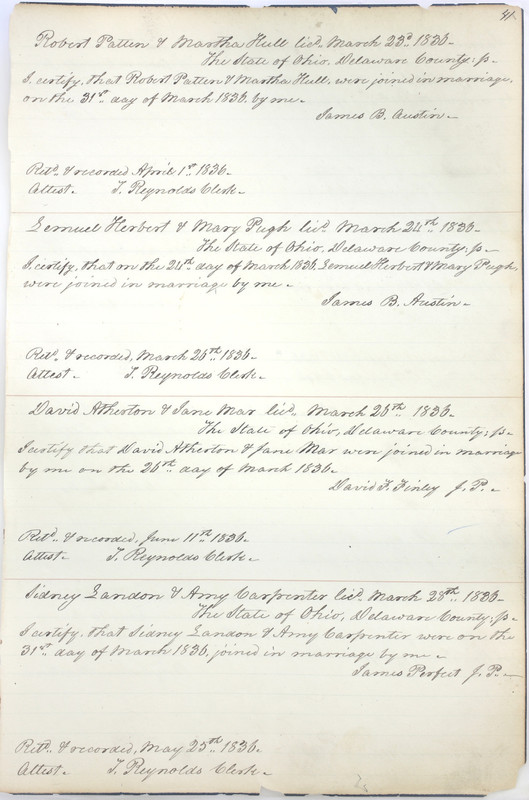 41.
Robert Patten & Martha Hull licd. March 23d 1836.
The State of Ohio, Delaware County; ss.
I, certify, that Robert Patten & Martha Hull, were joined in marriage,
on the 31st day of March 1836, by me.
James B. Austin.
Retd. & recorded April 1st 1836.
Attest. T. Reynolds Clerk.
Lemuel Herbert & Mary Pugh licd. March 24th 1836.
The State of Ohio, Delaware County; ss.
I, certify, that on the 24th day of March 1836, Lemuel Herbert & Mary Pugh,
were joined in marriage by me.
James B. Austin.
Retd. & recorded, March 26th 1836.
Attest. T. Reynolds Clerk.
David Atherton & Jane Mar licd. March 26th 1836.
The State of Ohio, Delaware County; ss.
I certify that David Atherton & Jane Mar were joined in marriage
by me on the 26th day of March 1836.
David F. Finley J. P.
Retd. & recorded, June 11th 1836.
Attest. T. Reynolds Clerk.
Sidney Landon & Amy Carpenter licd. March 28th 1836.
The State of Ohio, Delaware County; ss.
I certify, that Sidney Landon & Amy Carpenter were on the
31st day of March 1836, joined in marriage by me.
James Perfect J. P.
Retd. & recorded, May 25th 1836.
Attest. T. Reynolds Clerk.